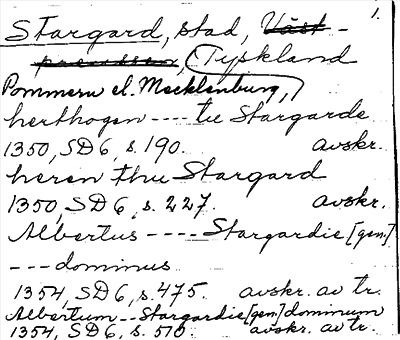 1.
Stargard, stad, Väst-
preussen, (Tyskland
Pommern el. Mecklenburg,)
herthogen ---- tu Stargarde
1350, SD 6, s. 190. avskr.
heren thu Stargard
1350, SD 6, s. 227. avskr.
Albertus ---- Stargardie [gen.]
--- dominus
1354, SD 6, s. 475. avskr. av tr.
Albertum -- Stargardie [gen] dominum
1354, SD 6, s. 510. avskr. av tr.